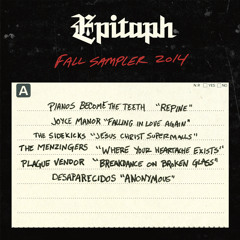 Epitaph
FALL SAMPLER 2014
N.R. YES NO
A
PIANOS BECOME THE TEETH "REPINE"
JOYCE MANOR "FALLING IN LOVE AGAIN"
THE SIDEKICKS "JESUS CHRIST SUPERMALLS"
THE MENZINGERS "WHERE YOUR HEARTACHE EXISTS"
PLAGUE VENDOR "BREAKDANCE ON BROKEN GLASS"
DESAPARECIDOS "ANONYMOUS"